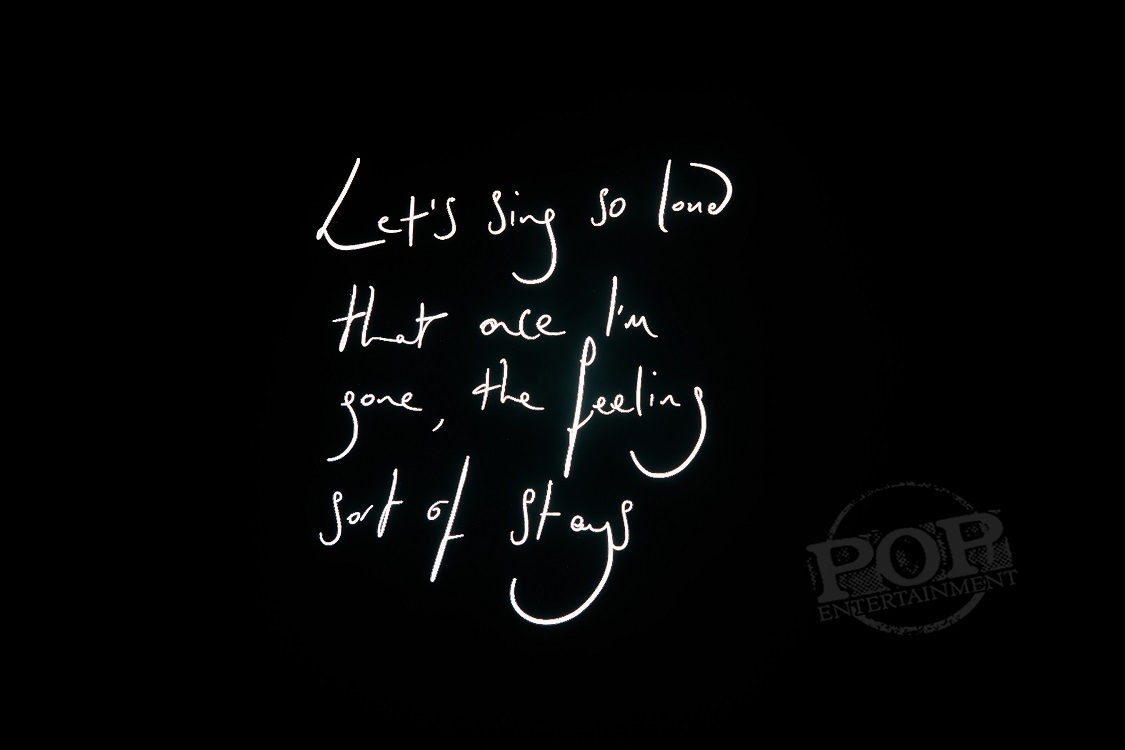 Let's sing so loud
that once I'm
gone, the feeling
sort of stays
POP
ENTERTAINMENT